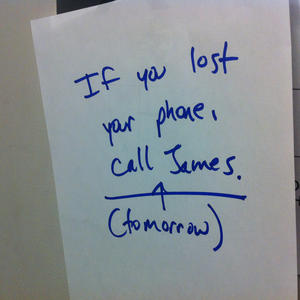 If you lost
your phone,
call James.
(tomorrow)